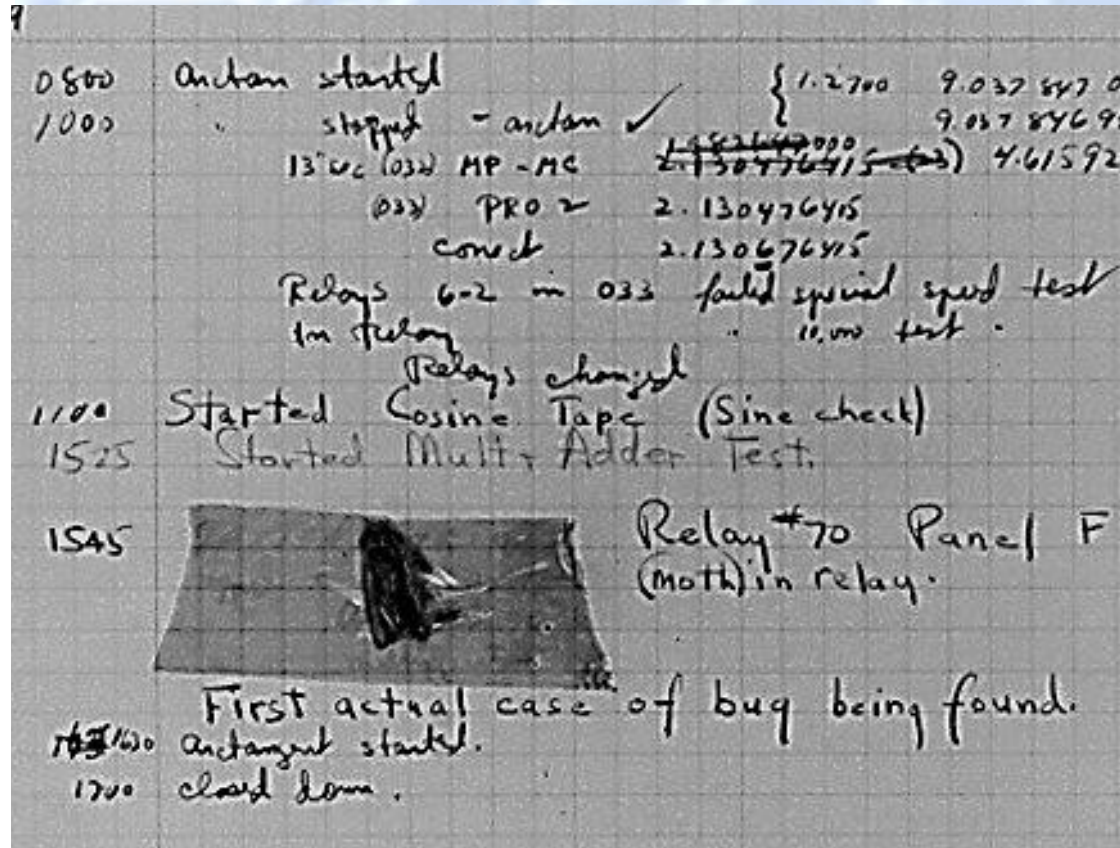 9
0800 antan started { 1.2700 9.037 847 0
1000 " stopped - antan ✓ 9.037 846 9
13" uc (032) MP - MC 2.130476415 (23) 4.61592
(033) PRO 2 2.130476415
conect 2.130676415
Relays 6-2 in 033 failed special speed test
In Relay " 10,000 test .
Relays changed
1100 Started Cosine Tape (Sine check)
1525 Started Mult + Adder Test.
1545 Relay #70 Panel F
(moth) in relay.
First actual case of bug being found.
1630 arctangent started.
1700 closed down .